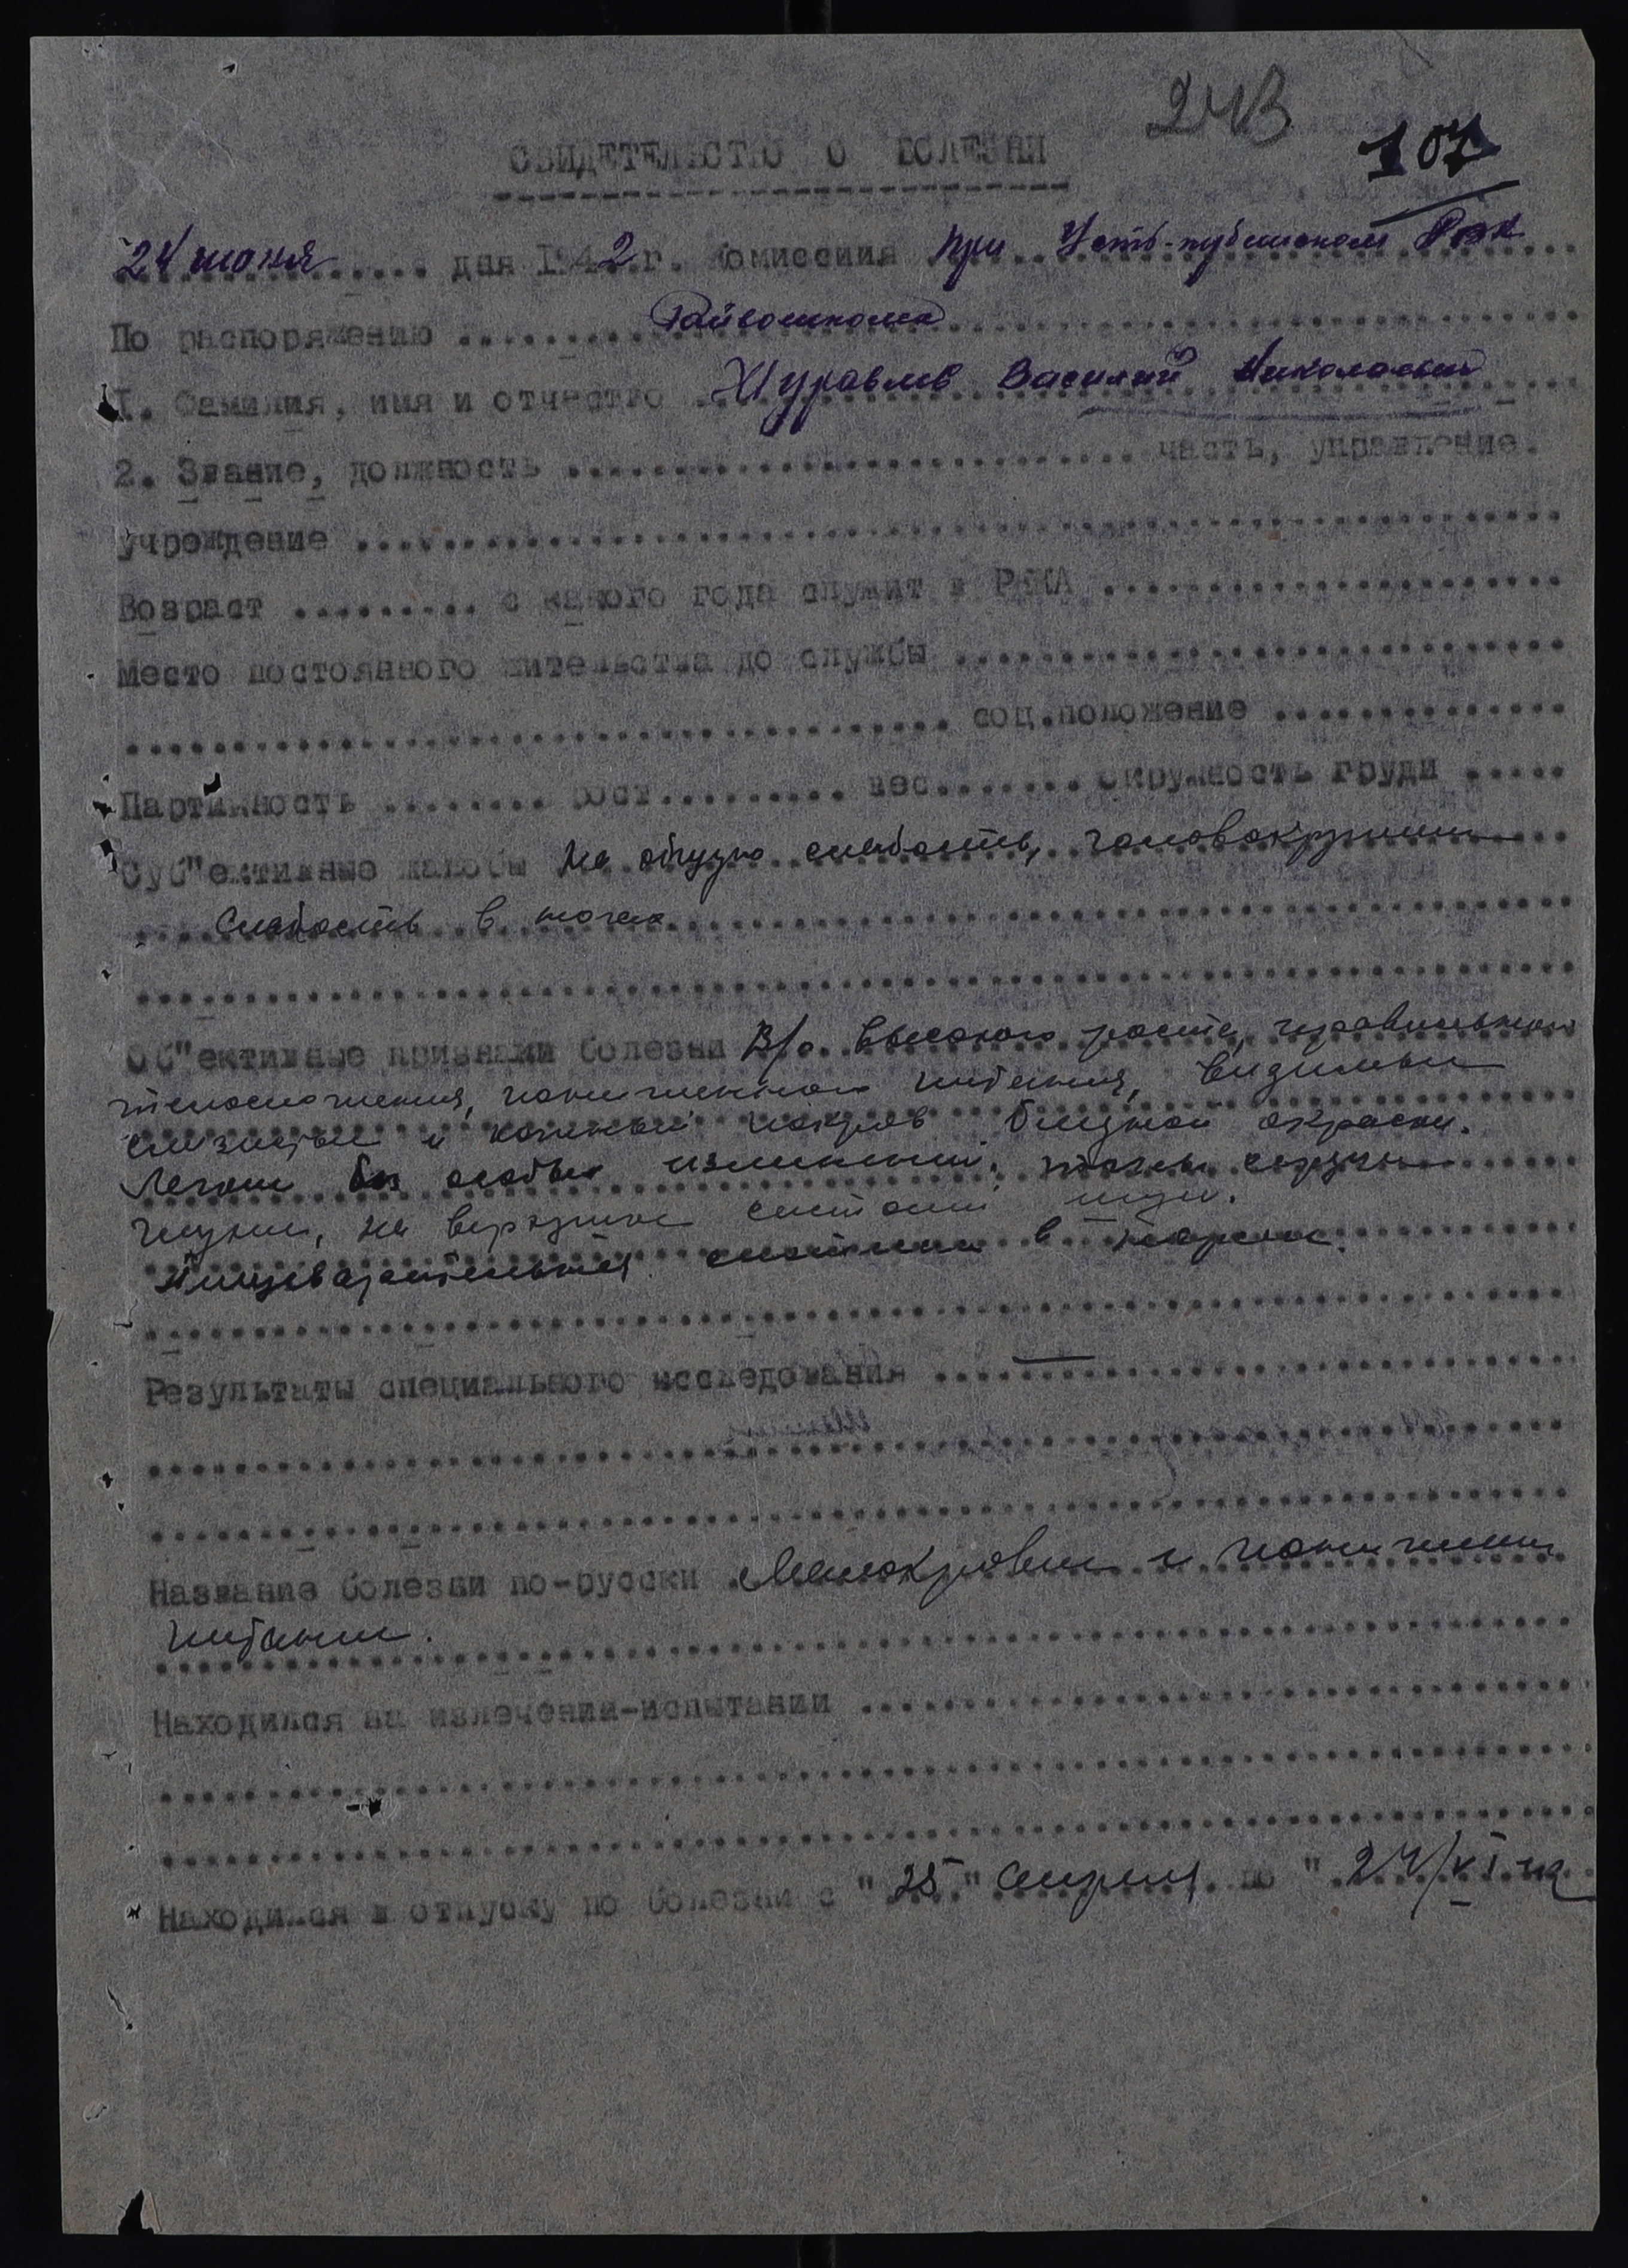 243
107
СВИДЕТЕЛЬСТВО О БОЛЕЗНИ
24 июня ..... дня 1942 г. Комиссиия при Усть-Кубинском РВК
По распоряжению Райвоенкома
1. Фамилия, имя и отчество Журавлев Василий Николаевич
2. Звание, должность .......... часть, управление.
учрождение ..........
Возраст .......... с какого года служит в РККА ..........
Место постоянного жительства до службы ..........
.......... соц.положение ..........
Партийность ........ рост.......... вес........ окружность груди .....
Суб"ективные жалобы На общую слабость, головокружение
Слабость в ногах
Об"ективные признаки болезни В/о. высокого роста, правильного
телосложения, пониженного питания, видимые
слизистые и кожный покров бледной окраски.
Легкие без особых изменений, тоны сердца
глухие, на верхушке систолич шум.
Пищеварительная система в норме.
Результаты специального исследования ..... —
Название болезни по-русски Малокровие и понижение
питания.
Находился на излечении-испытании ..........
Находился в отпуску по болезни с "25" апреля по " 24/VI-42